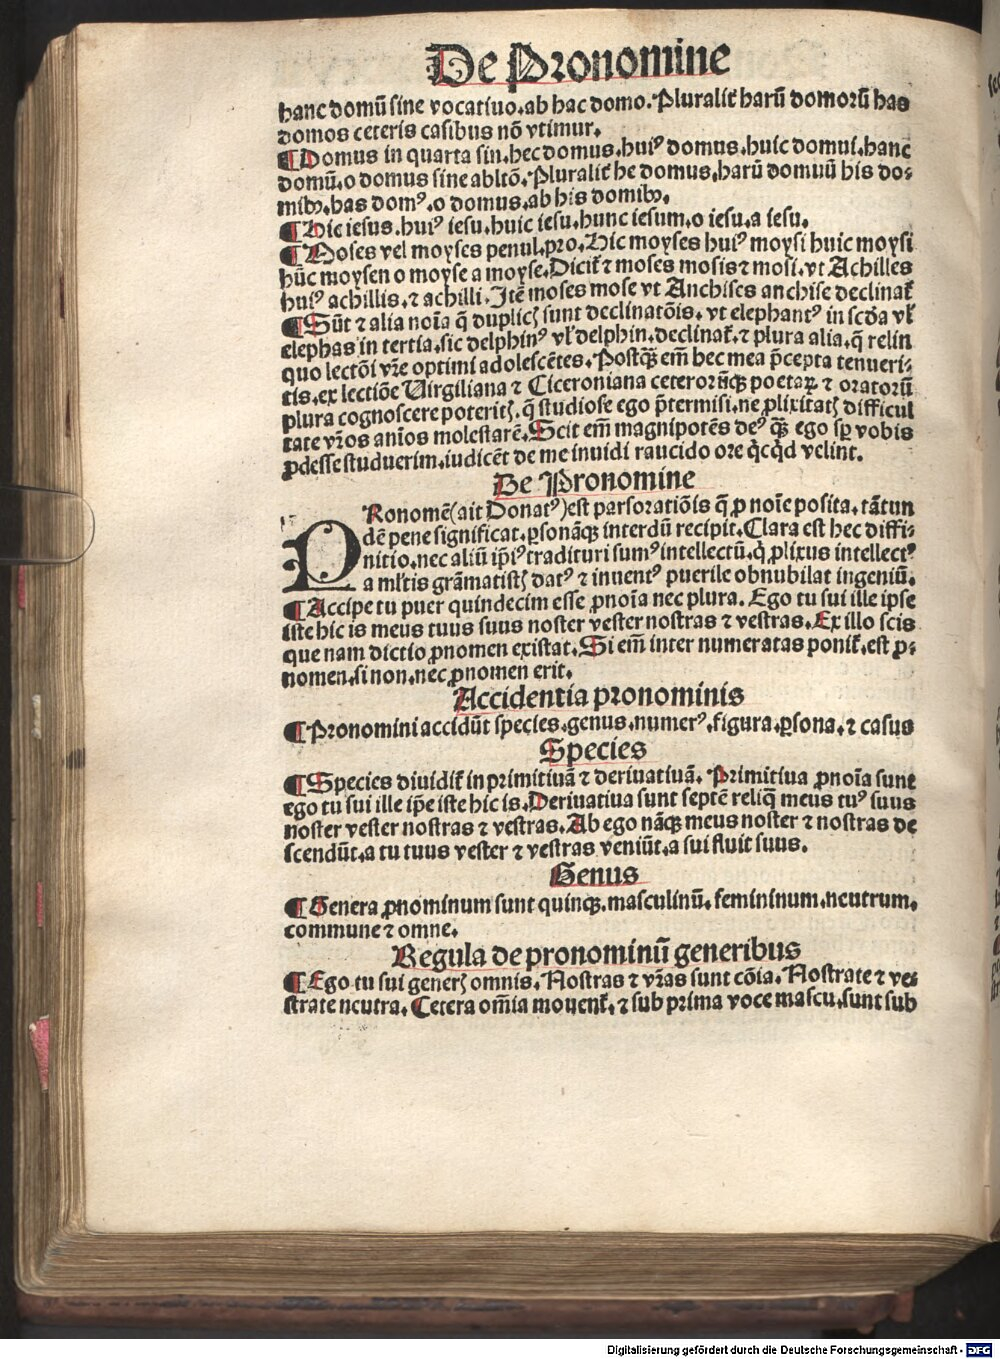 De Pronomine
hanc domū sine vocatiuo. ab hac domo. Pluralit̃ harū domorū has
domos ceteris casibus nō vtimur.
¶ Domus in quarta sin. hec domus. huiꝰ domus. huic domui. hanc
domū. o domus sine abltō. Pluralit̃ he domus. harū domuū his do⸗
mibꝫ. has domꝰ. o domus. ab his domibꝫ.
¶ Hic iesus. huiꝰ iesu. huic iesu. hunc iesum. o iesu. a iesu.
¶ Moses vel moyses penul. ꝓ̱o. Hic moyses huiꝰ moysi huic moysi
hūc moysen o moyse a moyse. Dicit̃ ⁊ moses mosis ⁊ mosi. vt Achilles
huiꝰ achillis. ⁊ achilli. Itē moses mose vt Anchises anchise declinat̃
¶ Sūt ⁊ alia noīa q̄ duplicꝭ sunt declinatōis. vt elephantꝰ in scđa vl̓
elephas in tertia. sic delphinꝰ vl̓ delphin. declinat̃. ⁊ plura alia. q̄ relin
quo lectōi vr̄e optimi adolescētes. Postqꝫ em̄ hec mea p̄cepta tenueri⸗
tis. ex lectiōe Uirgiliana ⁊ Ciceroniana ceterorūqꝫ poetaꝝ ⁊ oratorū
plura cognoscere poteritꝭ. q̄ studiose ego p̄termisi. ne ꝓlixitatꝭ difficul
tate vr̄os anīos molestarē. Scit em̄ magnipotēs deꝰ qꝫ ego sꝑ vobis
ꝓdesse studuerim. iudicēt de me inuidi raucido ore q̇cq̇d velint.
De Pronomine
PRonomē (ait Donatꝰ) est pars oratiōis q̄ ꝓ noīe posita. tātun
dē pene significat. ꝑsonāqꝫ interdū recipit. Clara est hec diffi⸗
nitio. nec aliū ip̄iꝰ tradituri sumꝰ intellectū. q̇ ꝓlixus intellectꝰ
a ml̓tis grāmatistꝭ datꝰ ⁊ inuentꝰ puerile obnubilat ingeniū.
¶ Accipe tu puer quindecim esse ꝓnoīa nec plura. Ego tu sui ille ipse
iste hic is meus tuus suus noster vester nostras ⁊ vestras. Ex illo scis
que nam dictio ꝓnomen existat. Si em̄ inter numeratas ponit̃. est ꝓ⸗
nomen. si non. nec ꝓnomen erit.
Accidentia pronominis
¶ Pronomini accidūt species. genus. numerꝰ. figura. ꝑsona. ⁊ casus
Species
¶ Species diuidit̃ in primitiuā ⁊ deriuatiuā. Primitiua ꝓnoīa sunt
ego tu sui ille ip̄e iste hic is. Deriuatiua sunt septē reliq̄ meus tuꝰ suus
noster vester nostras ⁊ vestras. Ab ego nāqꝫ meus noster ⁊ nostras de
scendūt. a tu tuus vester ⁊ vestras veniūt. a sui fluit suus.
Genus
¶ Genera ꝓnominum sunt quinqꝫ. masculinū. femininum. neutrum.
commune ⁊ omne.
Regula de pronominū generibus
¶ Ego tu sui generꝭ omnis. Nostras ⁊ vr̄as sunt cōia. Nostrate ⁊ ve⸗
strate neutra. Cetera om̄ia mouent̃. ⁊ sub prima voce mascu. sunt sub
Digitalisierung gefördert durch die Deutsche Forschungsgemeinschaft - DFG